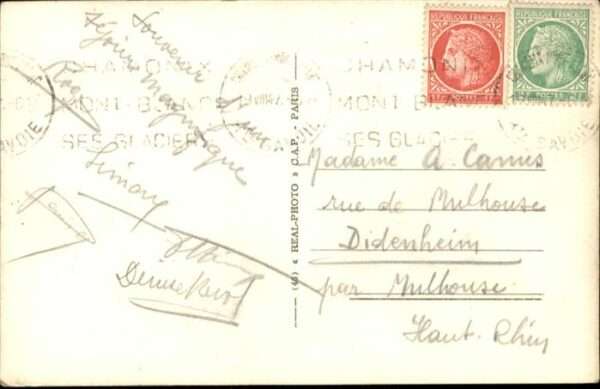 Souvenir
Séjour magnifique
CHAMONIX
MONT-BLANC
SES GLACIERS
Simone
REAL-PHOTO
C.A.P. - PARIS
REPUBLIQUE FRANÇAISE
REPUBLIQUE FRANÇAISE
CHAMONIX
MONT-BLANC
SES GLACIERS
Madame A Camus
rue de Mulhouse
Didenheim
par Mulhouse
Haut-Rhin